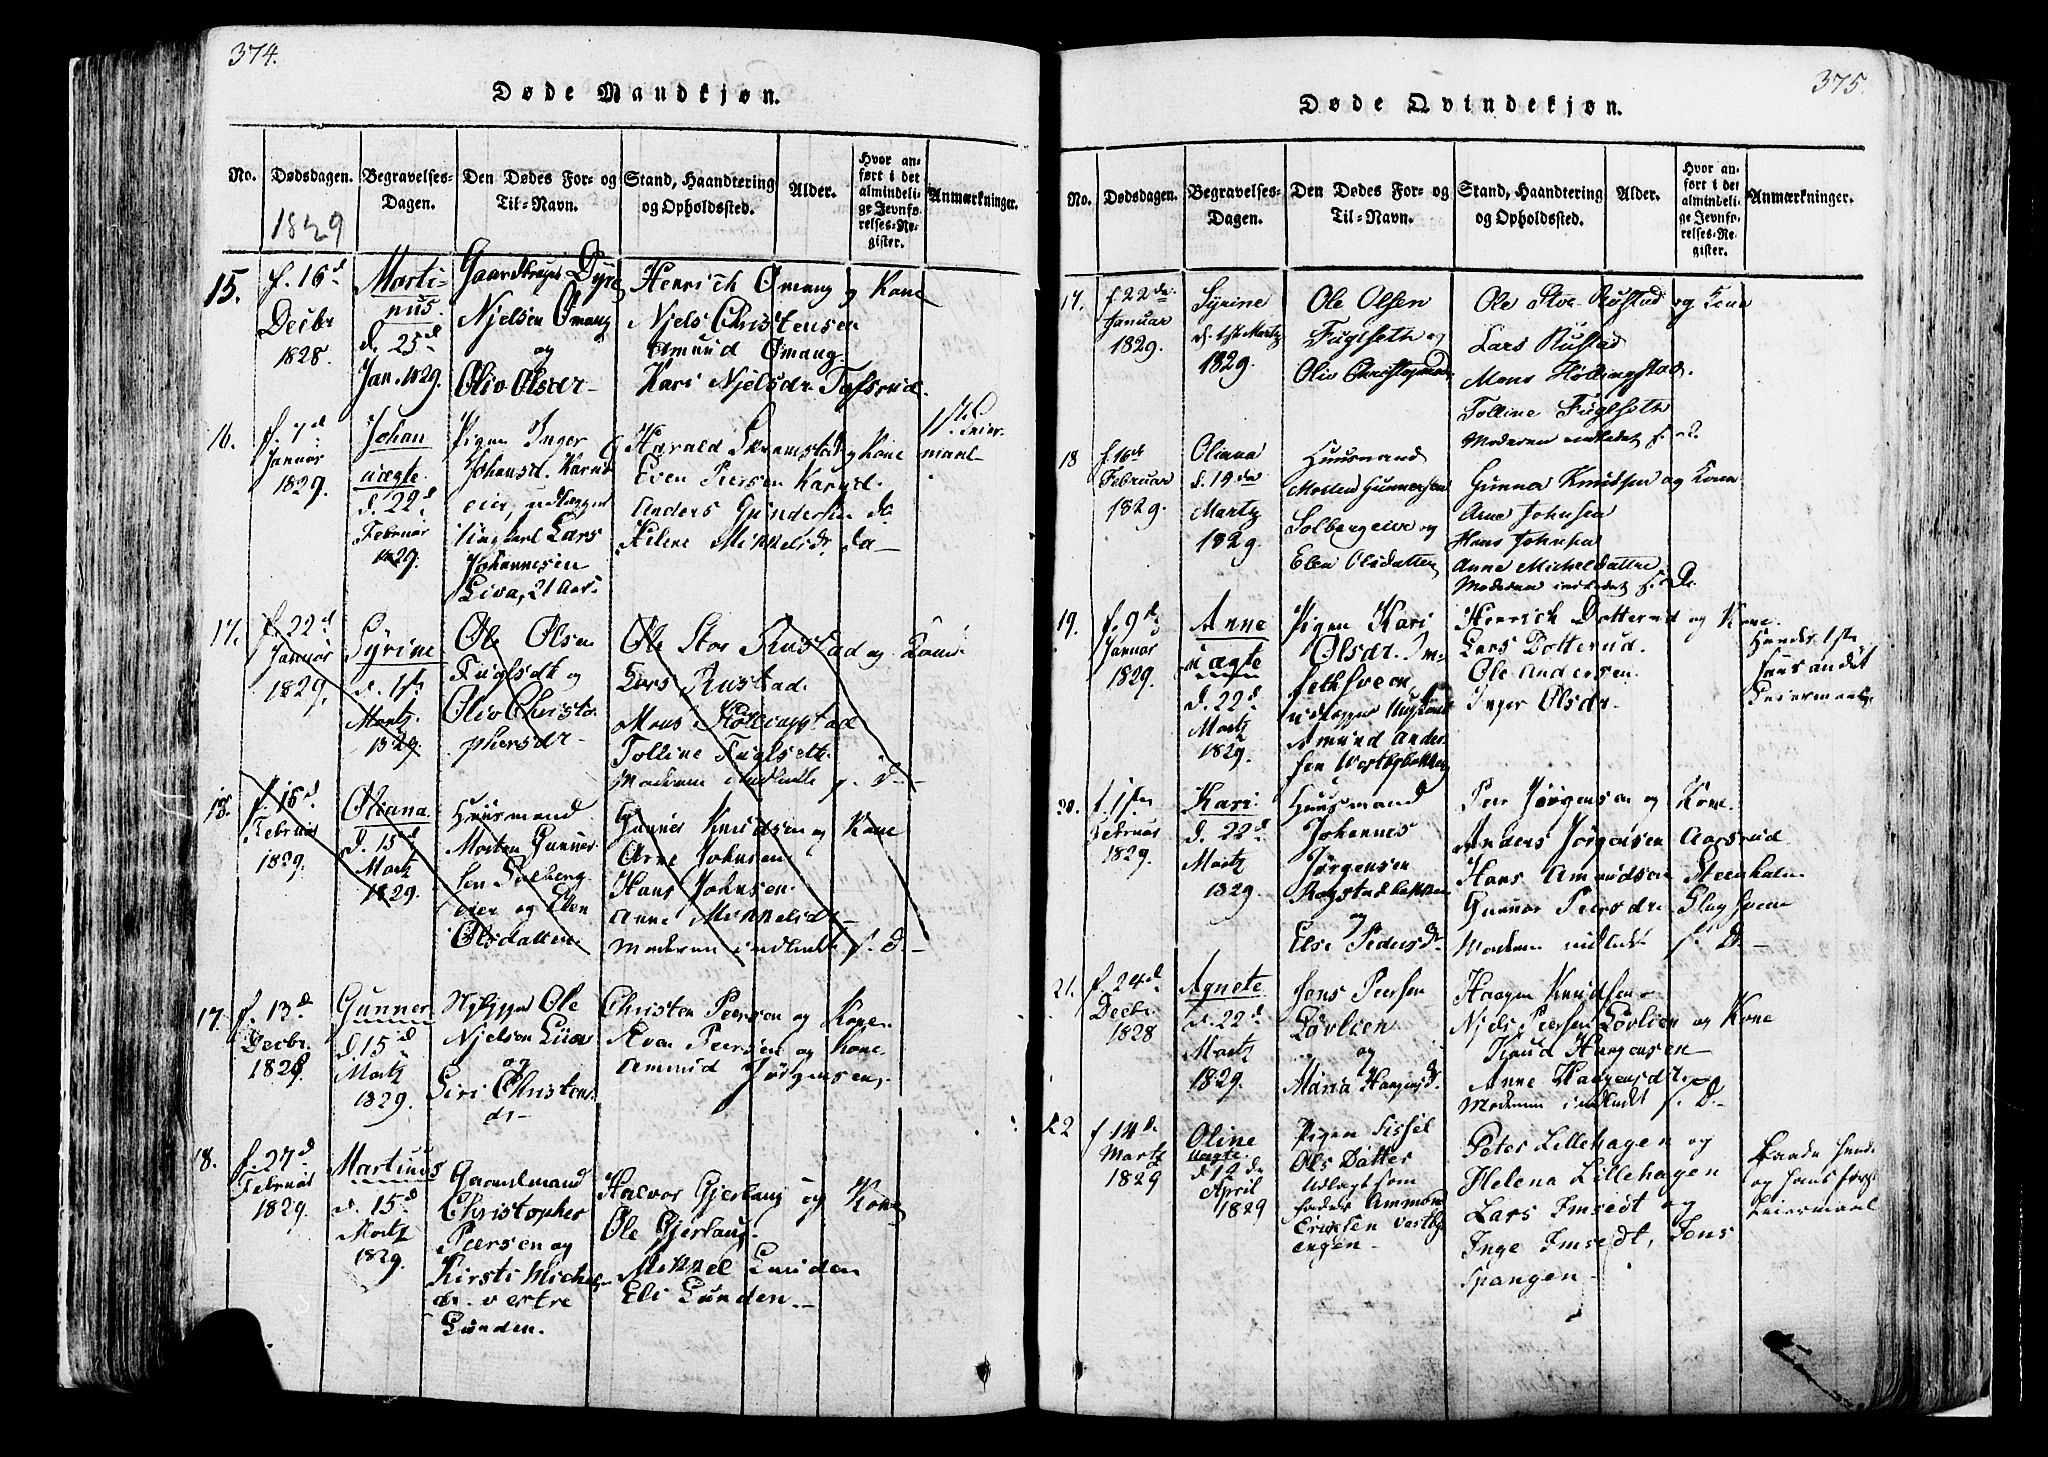 374.
Døde Mandkjøn.
No.
Dødsdagen.
Begravelses-
Dagen.
Den Dødes For- og
Til-Navn.
Stand, Haandtering
og Opholdssted.
Alder.
Hvor an-
ført i det
almindeli-
ge Jevnfø-
relses-Re-
gister.
Anmærkninger.
1829
15.
f. 16d
Decbr
1828.
Marti-
nus.
d. 25d
Jan. 1829.
Njelsen Ømang
og
Oliv Olsdr
Henrich Ømang og Kone
Njels Christensen
Amund Ømang
Kari Njelsdr
16.
f. 7d
Januar
1829.
Johan
uægte
d. 22d
Februar
1829.
Pigen Inger
Johansd.
eier, udlægger
Lars
Johannesen
21 Aar
Harald og Kone
Even Peersen
Anders Gundersen do
Mikkelsdr do
1st Leier-
maal
17.
f. 22d
Januar
1829.
Syrine
d. 1ste
Martz.
1829.
Ole Olsen
og
Oliv Christo-
phersdr
Ole Stor Rustad og Kone
Lars Rustad.
Mons
Tolline Fuglseth.
Moderen indledt f. D.
18.
f. 16d
Februar
1829.
Oliana
d. 15d
Martz
1829.
Huusmand
Morten Gunner-
sen Solberg
eier og Elen
Olsdatter.
Gunner Knudsen og Kone
Arne Johnsen
Hans Johnsen.
Anne Mikkelsdr
Moderen indledt f. D.
17.
f. 13d
Decbr.
1828.
Gunner
d. 15d
Martz
1829.
Ole
Njelsen
og
Siri Christens
dr
Christen Peersen og Kone.
Peersen og Kone.
Amund Jørgensen.
18.
f. 27d
Februar
1829.
Martinus
d. 15d
Martz
1829.
Gaardmand
Christopher
Peersen og
Kirsti Michels
dr. vestre
Lunden.
Halvor Gjerlaug og Kone
Ole Gjerlaug.
Mikkel Lunden
Eli Lunden.
375.
Døde Qvindekjøn.
No.
Dødsdagen.
Begravelses-
Dagen.
Den Dødes For- og
Til-Navn.
Stand, Haandtering
og Opholdssted.
Alder.
Hvor an-
ført i det
almindeli-
ge Jevnfø-
relses-Re-
gister.
Anmærkninger.
17.
f. 22de
Januar
1829.
Syrine
d. 1st Martz
1829.
Ole Olsen
Fuglseth og
Oliv
Ole Stoe Rustad og Kone
Lars Rustad
Mons
Tolline Fuglseth
Moderen indledet f. d.
18
f. 16de
Februar
1829.
Oliana
Martz
1829.
Huusmand
Morten Gunnersen
Solbergeier og
Elen Olsdatter
Gunner Knudsen og Kone
Arne Johnsen
Hans Johnsen
Anne Michelsdatter
Moderen indledet f. D.
19.
f. 9d
Januar
1829.
Anne
uægte
d. 22d
Martz
1829.
Pigen Kari
Olsdr.
udlægger
Amund Ander-
sen
Henrich Dotterud og Kone.
Lars Dotterud.
Ole Andersen.
Inger Olsdr.
Hendes 1ste
hans andet
Leiermaal.
20.
f. 1ste
Februar
1829.
Kari.
d. 22d
Martz
1829.
Huusmand
Johannes
Jørgensen
og
Else Pedersdr.
Peer Jørgensen og Kone.
Anders Jørgensen Aarsrud
Hans Amundsen Steenholm
Gunnor Peersdr
Moderen indledt f. D.
21.
f. 24d
Decbr.
1828
Agnete
d. 22d
Martz
1829.
Jens Peersen
Løvlien
og
Maria Haagensdr.
Haagen Knudsen
Njels Peersen Løvlien og Kone
Knud Haagensen
Anne Haagensdr.
Moderen indledt f. D.
22
f 14de
Martz
1829
Oline
uægte
d 12 de
April
1829
Pigen Sissel
Ols Datter
Udlagt som
fader Ammond
Ericksen Vestby
engen
Peter Lillehagen og
Helena Lillehagen
Lars Imsedt og
Inge Imsedt, Jens
Spangen
Baade hendes
og hans første
Leiermaal